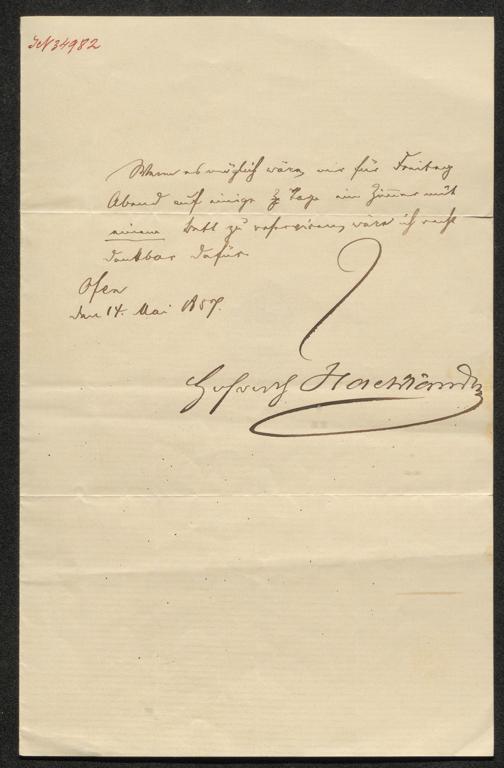 JN 34982
Wenn es möglich wäre, mir für Freitag
Abend auf einige Tage ein Zimmer mit
einem Bett zu reserviren, wäre ich recht
dankbar dafür.
Ofen
den 14. Mai 857.
Hackländer